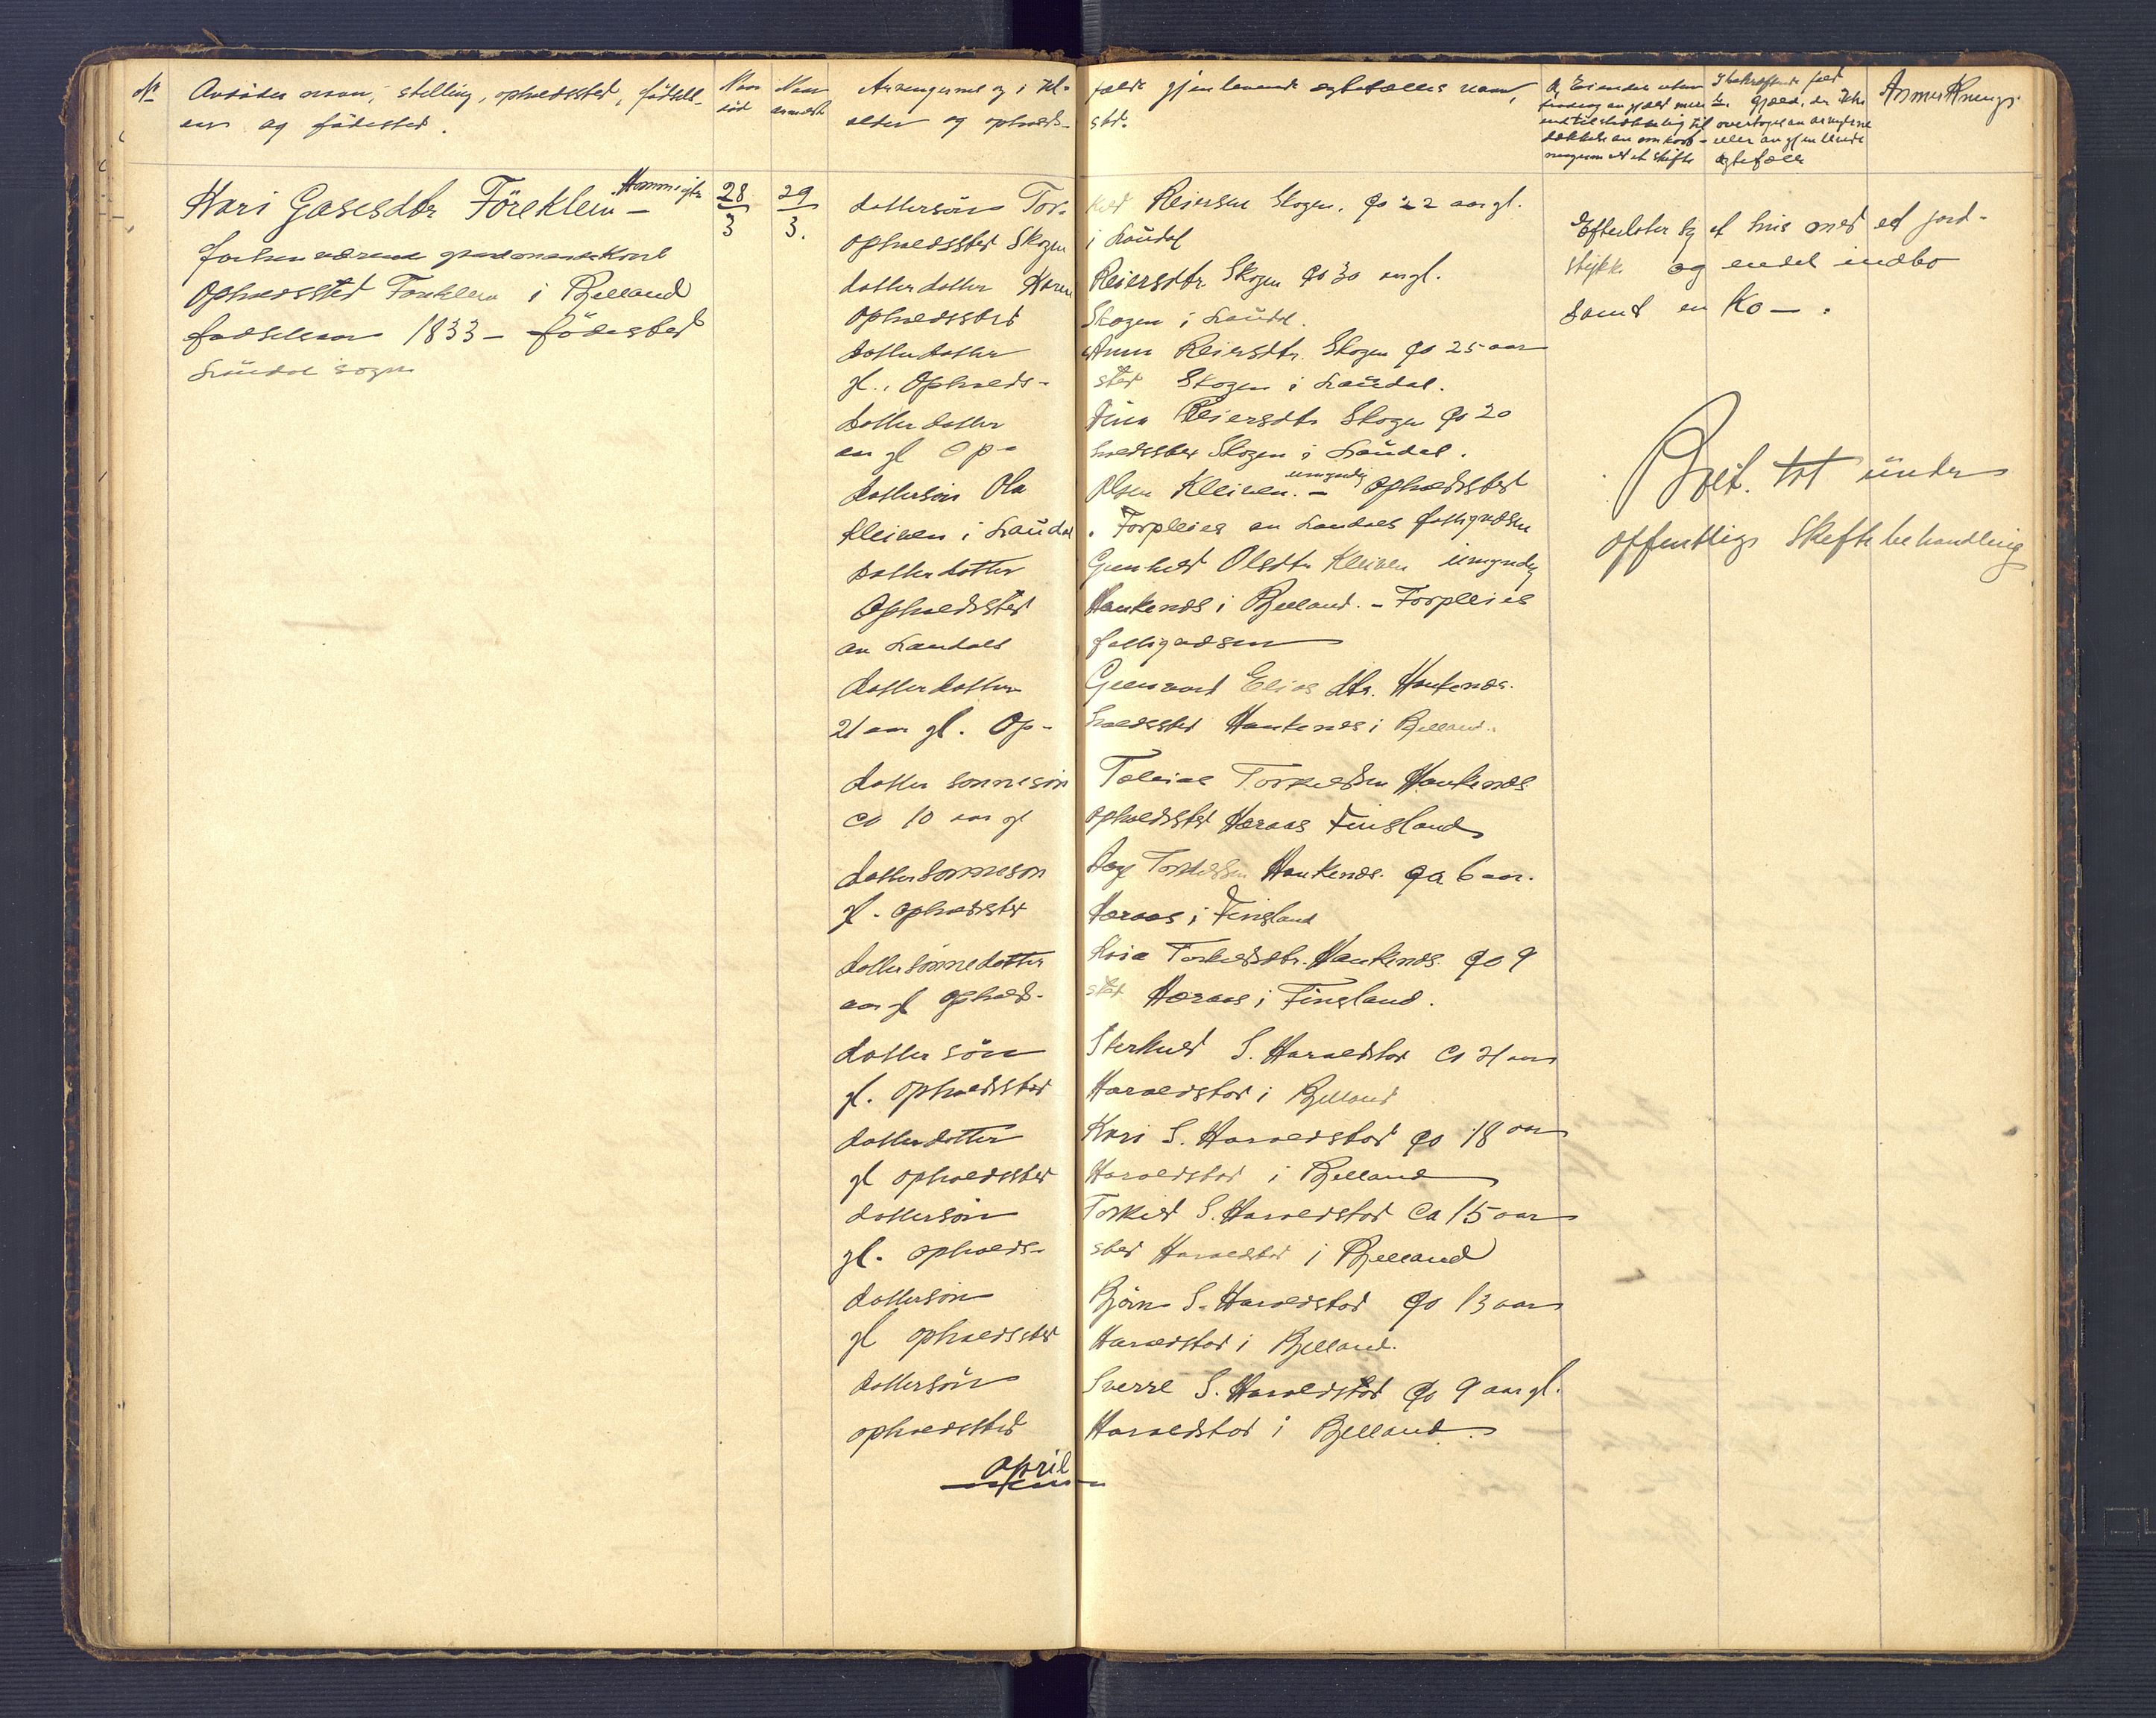 No Avdødes navn, stilling, opholdssted, fødsels-
aar og fødested.
Naar død
Naar anmeldt
Arvingernes og i til-
fælde gjenlevende egtefælles navn,
alder og opholds-
sted.
Kari Gasesdtr Föreklev -
28/3
29/3.
forhenværende gaardmandskone
Opholdssted Foreklev i Bjelland
fødselsaar 1833 - fødested
Laudal sogn
dattersön Tor-
keld Reiersen Skogen, ca 22 aar gl.
opholdssted Skogen i Laudal
datterdatter Karen Reiersdtr. Skogen ca 30 aar gl.
Opholdssted Skogen i Laudal.
datterdatter Anna Reiersdtr. Skogen ca 25 aar
gl., Opholds- sted Skogen i Laudal.
datterdatter Reiersdtr Skogen ca 20
aar gl Op- holdssted Skogen i Laudal.
dattersön Ola Olsen Kleiven. - umyndig Opholdssted
Kleiven i Laudal. Forpleies av Laudals fattigvæsen
datterdatter Gunhild Olsdtr Kleiven umyndig
Opholdssted Haukenes i Bjelland. - Forpleies
av Laudals fattigvæsen
datterdatter Gunvord Elias dtr. Haukenes.
21 aar gl. Op- holdssted Haukenes i Bjelland.
datter sonneson Tobias Torkeldsen Haukenes
ca 10 aar gl opholdssted Heraas Finsland
dattersonneson Torkeldsen Haukenes. ca 6 aar.
gl. opholdssted Heraas i Finsland
dattersønnedatter Torkeldsdtr. Haukenes. ca 9
aar gl ophold- sted Heraas i Finsland.
dattersön Sterkuld S. Haraldstad ca 21 aar
gl. opholdssted Haraldstad i Bjelland
datterdatter Kari S. Haraldstad ca 18 aar
gl opholdssted Haraldstad i Bjelland
dattersön Torkild S. Haraldstad ca 15 aar
gl. opholds- sted Haraldstad i Bjelland
dattersön Bjørn S. Haraldstad ca 13 aar
gl opholdssted Haraldstad i Bjelland.
dattersön Sverre S. Haraldstad ca 9 aar gl.
opholdssted Haraldstad i Bjelland.
april
Anmerkninger
Efterlater seg et hus med et jord-
stykke og endel indbo
samt en Ko - .
Boet tat under
offentlig Skiftebehandling